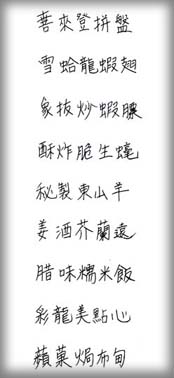 喜來登拼盤
雪蛤龍蝦翅
象拔炒蝦腰
酥炸脆生蠔
秘製東山羊
姜酒芥蘭遠
腊味糯米飯
彩龍美點心
蘋菓焗布甸